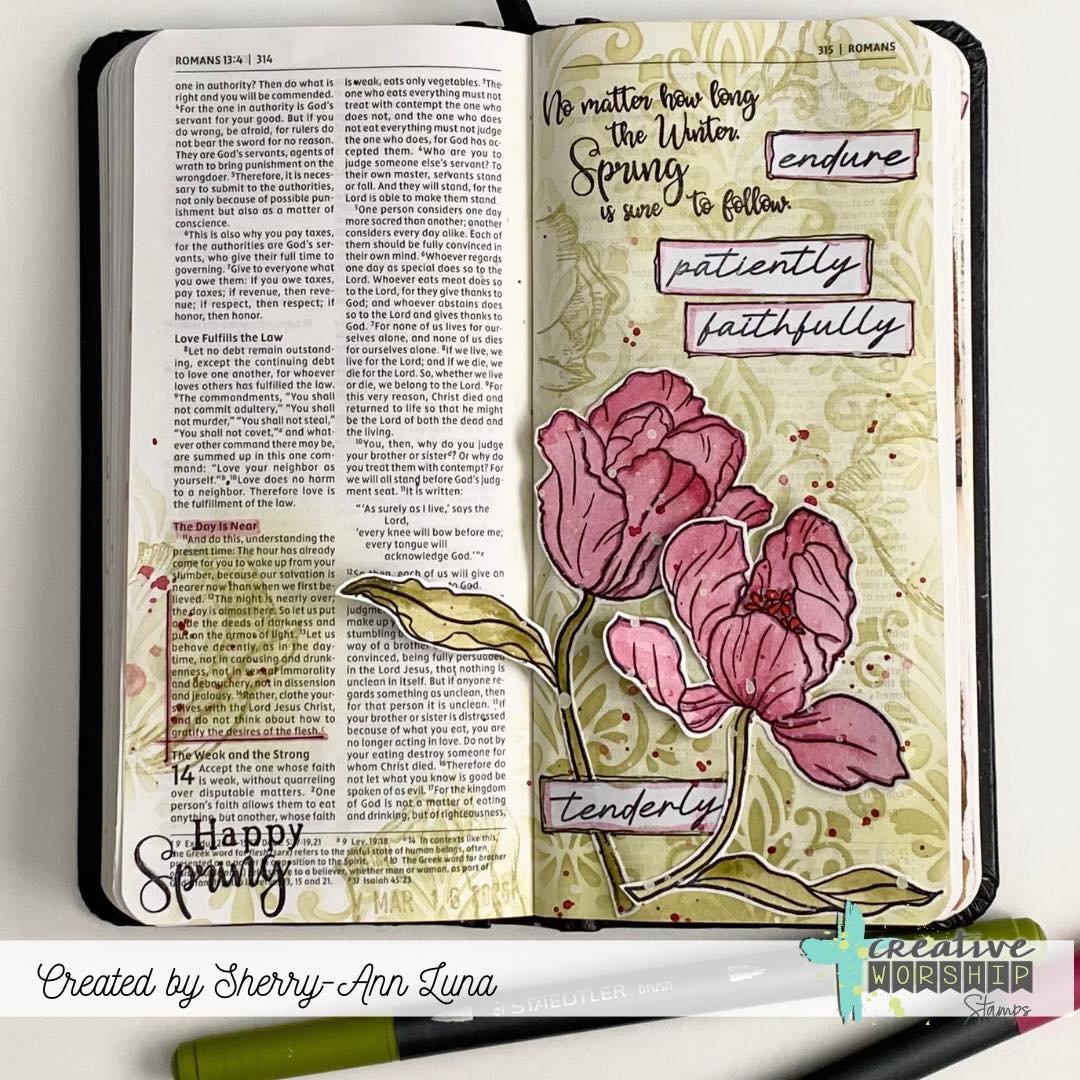 ROMANS 13:4 | 314
one in authority? Then do what is
right and you will be commended.
⁴For the one in authority is God's
servant for your good. But if you
do wrong, be afraid, for rulers do
not bear the sword for no reason.
They are God's servants, agents of
wrath to bring punishment on the
wrongdoer. ⁵Therefore, it is neces-
sary to submit to the authorities,
not only because of possible pun-
ishment but also as a matter of
conscience.
⁶This is also why you pay taxes,
for the authorities are God's ser-
vants, who give their full time to
governing. ⁷Give to everyone what
you owe them: If you owe taxes,
pay taxes; if revenue, then reve-
nue; if respect, then respect; if
honor, then honor.
Love Fulfills the Law
⁸Let no debt remain outstand-
ing, except the continuing debt
to love one another, for whoever
loves others has fulfilled the law.
⁹The commandments, "You shall
not commit adultery," "You shall
not murder," "You shall not steal,"
"You shall not covet,"ᵃ and what-
ever other command there may be,
are summed up in this one com-
mand: "Love your neighbor as
yourself."ᵇ ¹⁰Love does no harm
to a neighbor. Therefore love is
the fulfillment of the law.
The Day Is Near
¹¹And do this, understanding the
present time: The hour has already
come for you to wake up from your
slumber, because our salvation is
nearer now than when we first be-
lieved. ¹²The night is nearly over;
the day is almost here. So let us put
aside the deeds of darkness and
put on the armor of light. ¹³Let us
behave decently, as in the day-
time, not in carousing and drunk-
enness, not in sexual immorality
and debauchery, not in dissension
and jealousy. ¹⁴Rather, clothe your-
selves with the Lord Jesus Christ,
and do not think about how to
gratify the desires of the flesh.ᶜ
The Weak and the Strong
14 Accept the one whose faith
is weak, without quarreling
over disputable matters. ²One
person's faith allows them to eat
anything, but another, whose faith
is weak, eats only vegetables. ³The
one who eats everything must not
treat with contempt the one who
does not, and the one who does
not eat everything must not judge
the one who does, for God has ac-
cepted them. ⁴Who are you to
judge someone else's servant? To
their own master, servants stand
or fall. And they will stand, for the
Lord is able to make them stand.
⁵One person considers one day
more sacred than another; another
considers every day alike. Each of
them should be fully convinced in
their own mind. ⁶Whoever regards
one day as special does so to the
Lord. Whoever eats meat does so
to the Lord, for they give thanks to
God; and whoever abstains does
so to the Lord and gives thanks to
God. ⁷For none of us lives for our-
selves alone, and none of us dies
for ourselves alone. ⁸If we live, we
live for the Lord; and if we die, we
die for the Lord. So, whether we live
or die, we belong to the Lord. ⁹For
this very reason, Christ died and
returned to life so that he might
be the Lord of both the dead and
the living.
¹⁰You, then, why do you judge
your brother or sisterᵈ? Or why do
you treat them with contempt? For
we will all stand before God's judg-
ment seat. ¹¹It is written:
"'As surely as I live,' says the
Lord,
'every knee will bow before me;
every tongue will
acknowledge God.'"ᵉ
¹²So then, each of us will give an
to God.
judgment
make up
stumbling
way of a brother
convinced, being fully persuaded
in the Lord Jesus, that nothing is
unclean in itself. But if anyone re-
gards something as unclean, then
for that person it is unclean. ¹⁵If
your brother or sister is distressed
because of what you eat, you are
no longer acting in love. Do not by
your eating destroy someone for
whom Christ died. ¹⁶Therefore do
not let what you know is good be
spoken of as evil. ¹⁷For the kingdom
of God is not a matter of eating
and drinking, but of righteousness,
Happy
Spring
ᵇ 9 Lev. 19:18 ᶜ 14 In contexts like this,
the Greek word for flesh (sarx) refers to the sinful state of human beings, often
presented as a power in opposition to the Spirit. 10 The Greek word for brother
to a believer, whether man or woman, as part of
13, 15 and 21. ᵉ 11 Isaiah 45:23
MAR 1 6
315 | ROMANS
No matter how long
the Winter,
Spring
is sure to follow.
endure
patiently
faithfully
tenderly
Created by Sherry-Ann Luna
STAEDTLER brush
creative
WORSHIP
Stamps